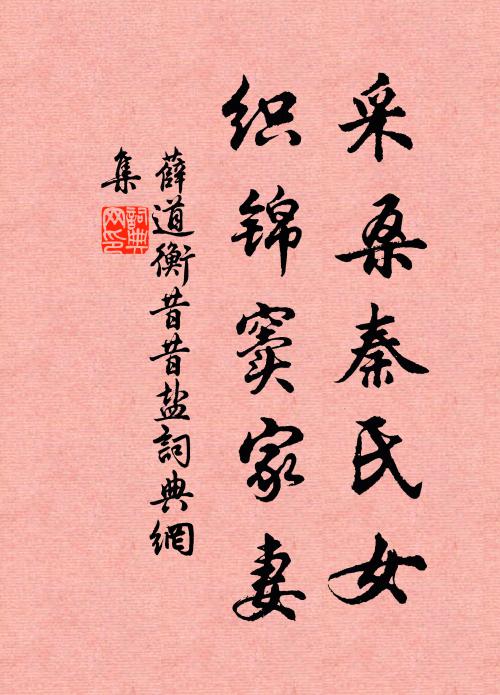 采桑秦氏女
织锦窦家妻
薛道衡昔昔盐詞典網
集
詞典
网印